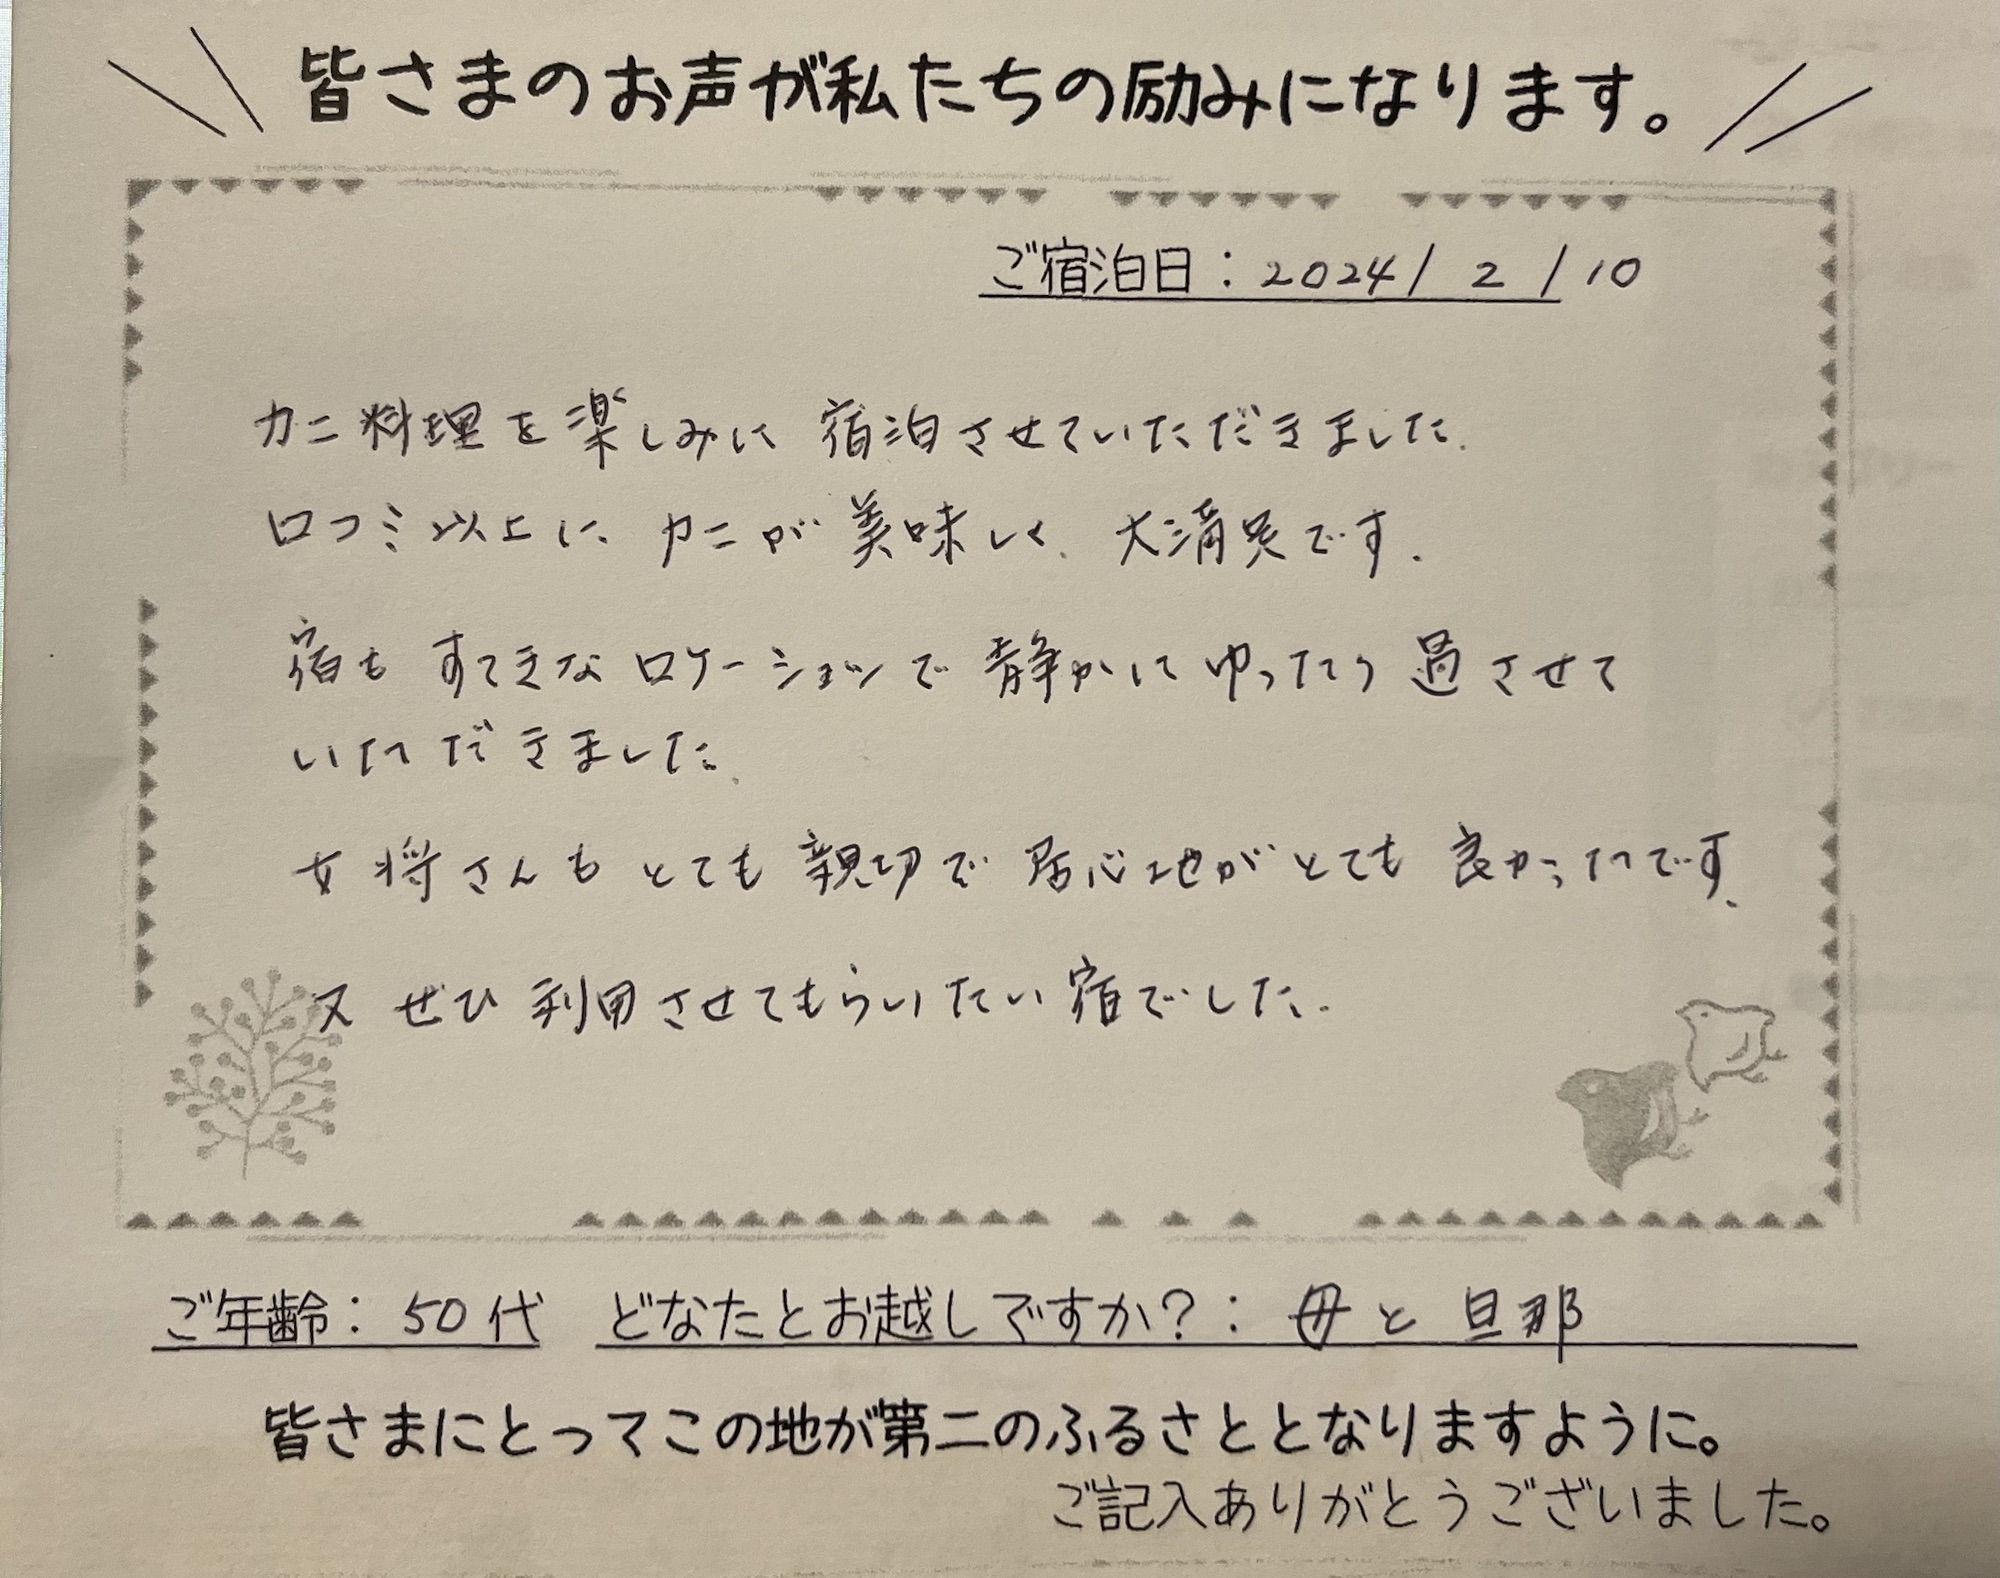 皆さまのお声が私たちの励みになります。
ご宿泊日：2024/2/10
カニ料理を楽しみに宿泊させていただきました。
口コミ以上に、カニが美味しく、大満足です。
宿もすてきなロケーションで静かにゆったり過させて
いただきました。
女将さんもとても親切で居心地がとても良かったです。
又ぜひ利用させてもらいたい宿でした。
ご年齢：50代 どなたとお越しですか？：母と旦那
皆さまにとってこの地が第二のふるさととなりますように。
ご記入ありがとうございました。